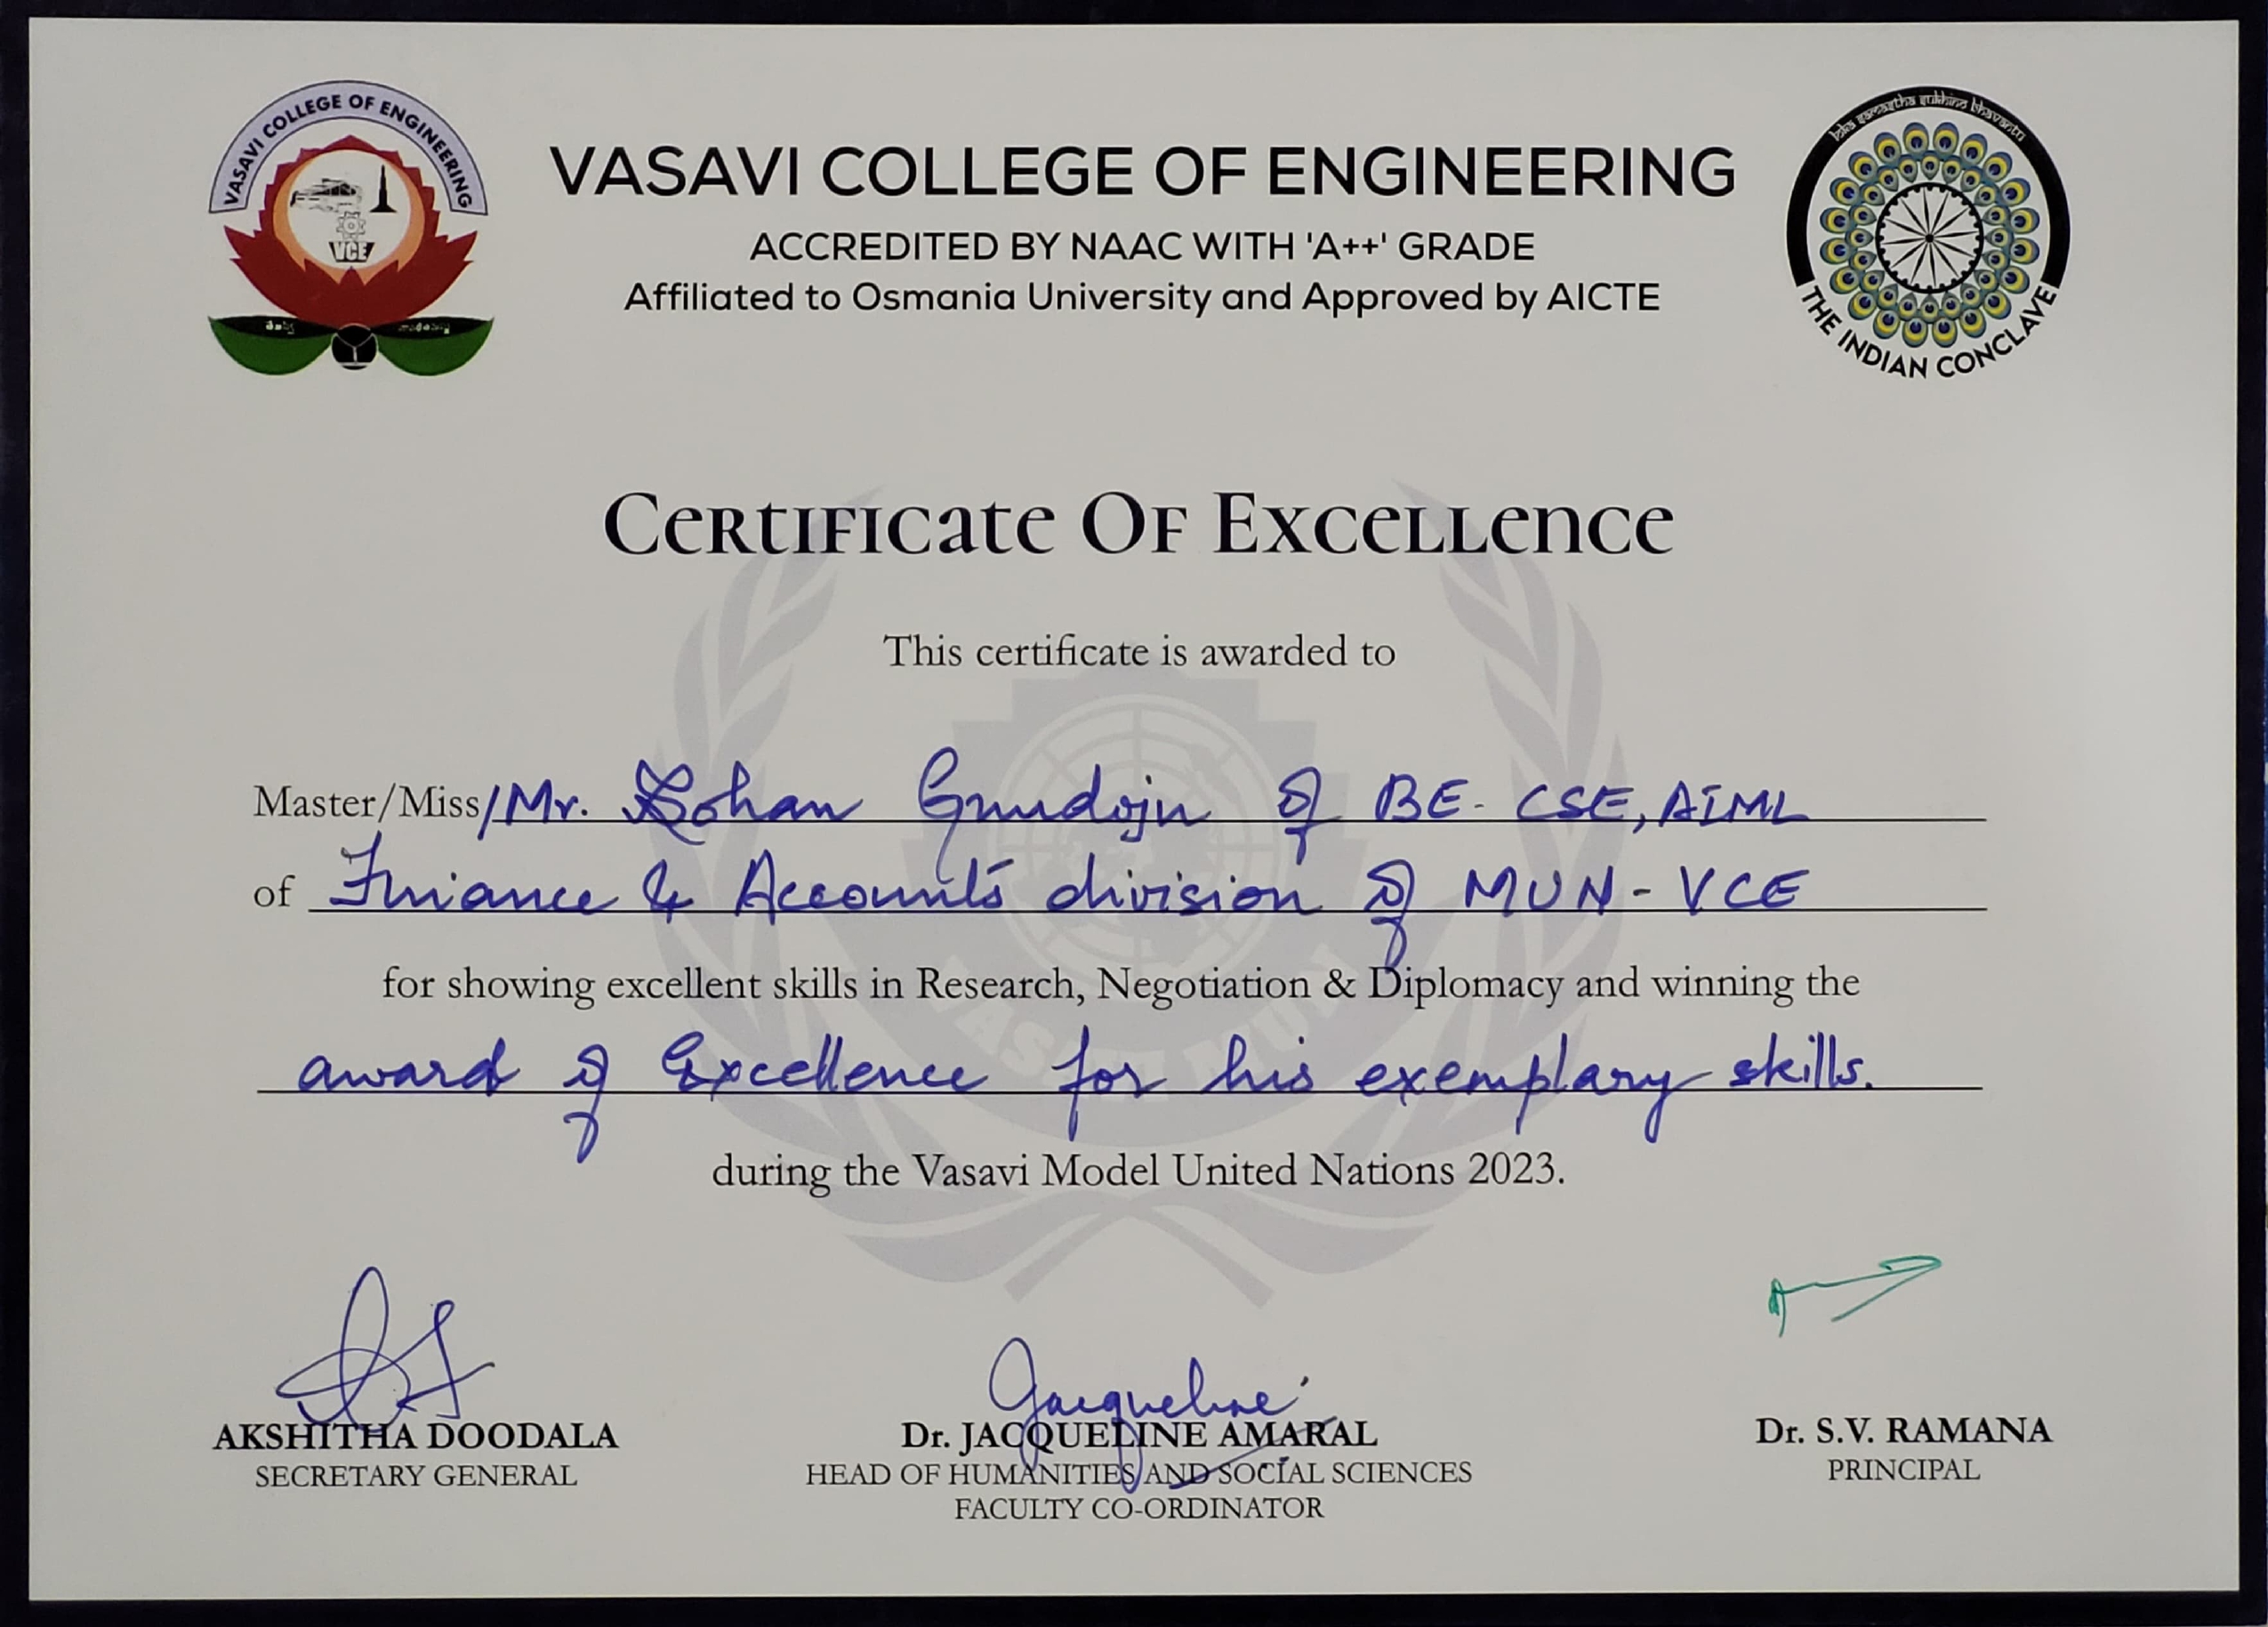 VASAVI COLLEGE OF ENGINEERING
VCE
VASAVI COLLEGE OF ENGINEERING
ACCREDITED BY NAAC WITH 'A++' GRADE
Affiliated to Osmania University and Approved by AICTE
loka samastha sukhino bhavantu
THE INDIAN CONCLAVE
Certificate Of Excellence
This certificate is awarded to
Master/Miss/Mr. Rohan Gundoju of BE- CSE, AIML
of Finance & Accounts division of MUN-VCE
for showing excellent skills in Research, Negotiation & Diplomacy and winning the
award of Excellence for his exemplary skills.
during the Vasavi Model United Nations 2023.
VASAVI MUN
Jacqueline
AKSHITHA DOODALA
SECRETARY GENERAL
Dr. JACQUELINE AMARAL
HEAD OF HUMANITIES AND SOCIAL SCIENCES
FACULTY CO-ORDINATOR
Dr. S.V. RAMANA
PRINCIPAL